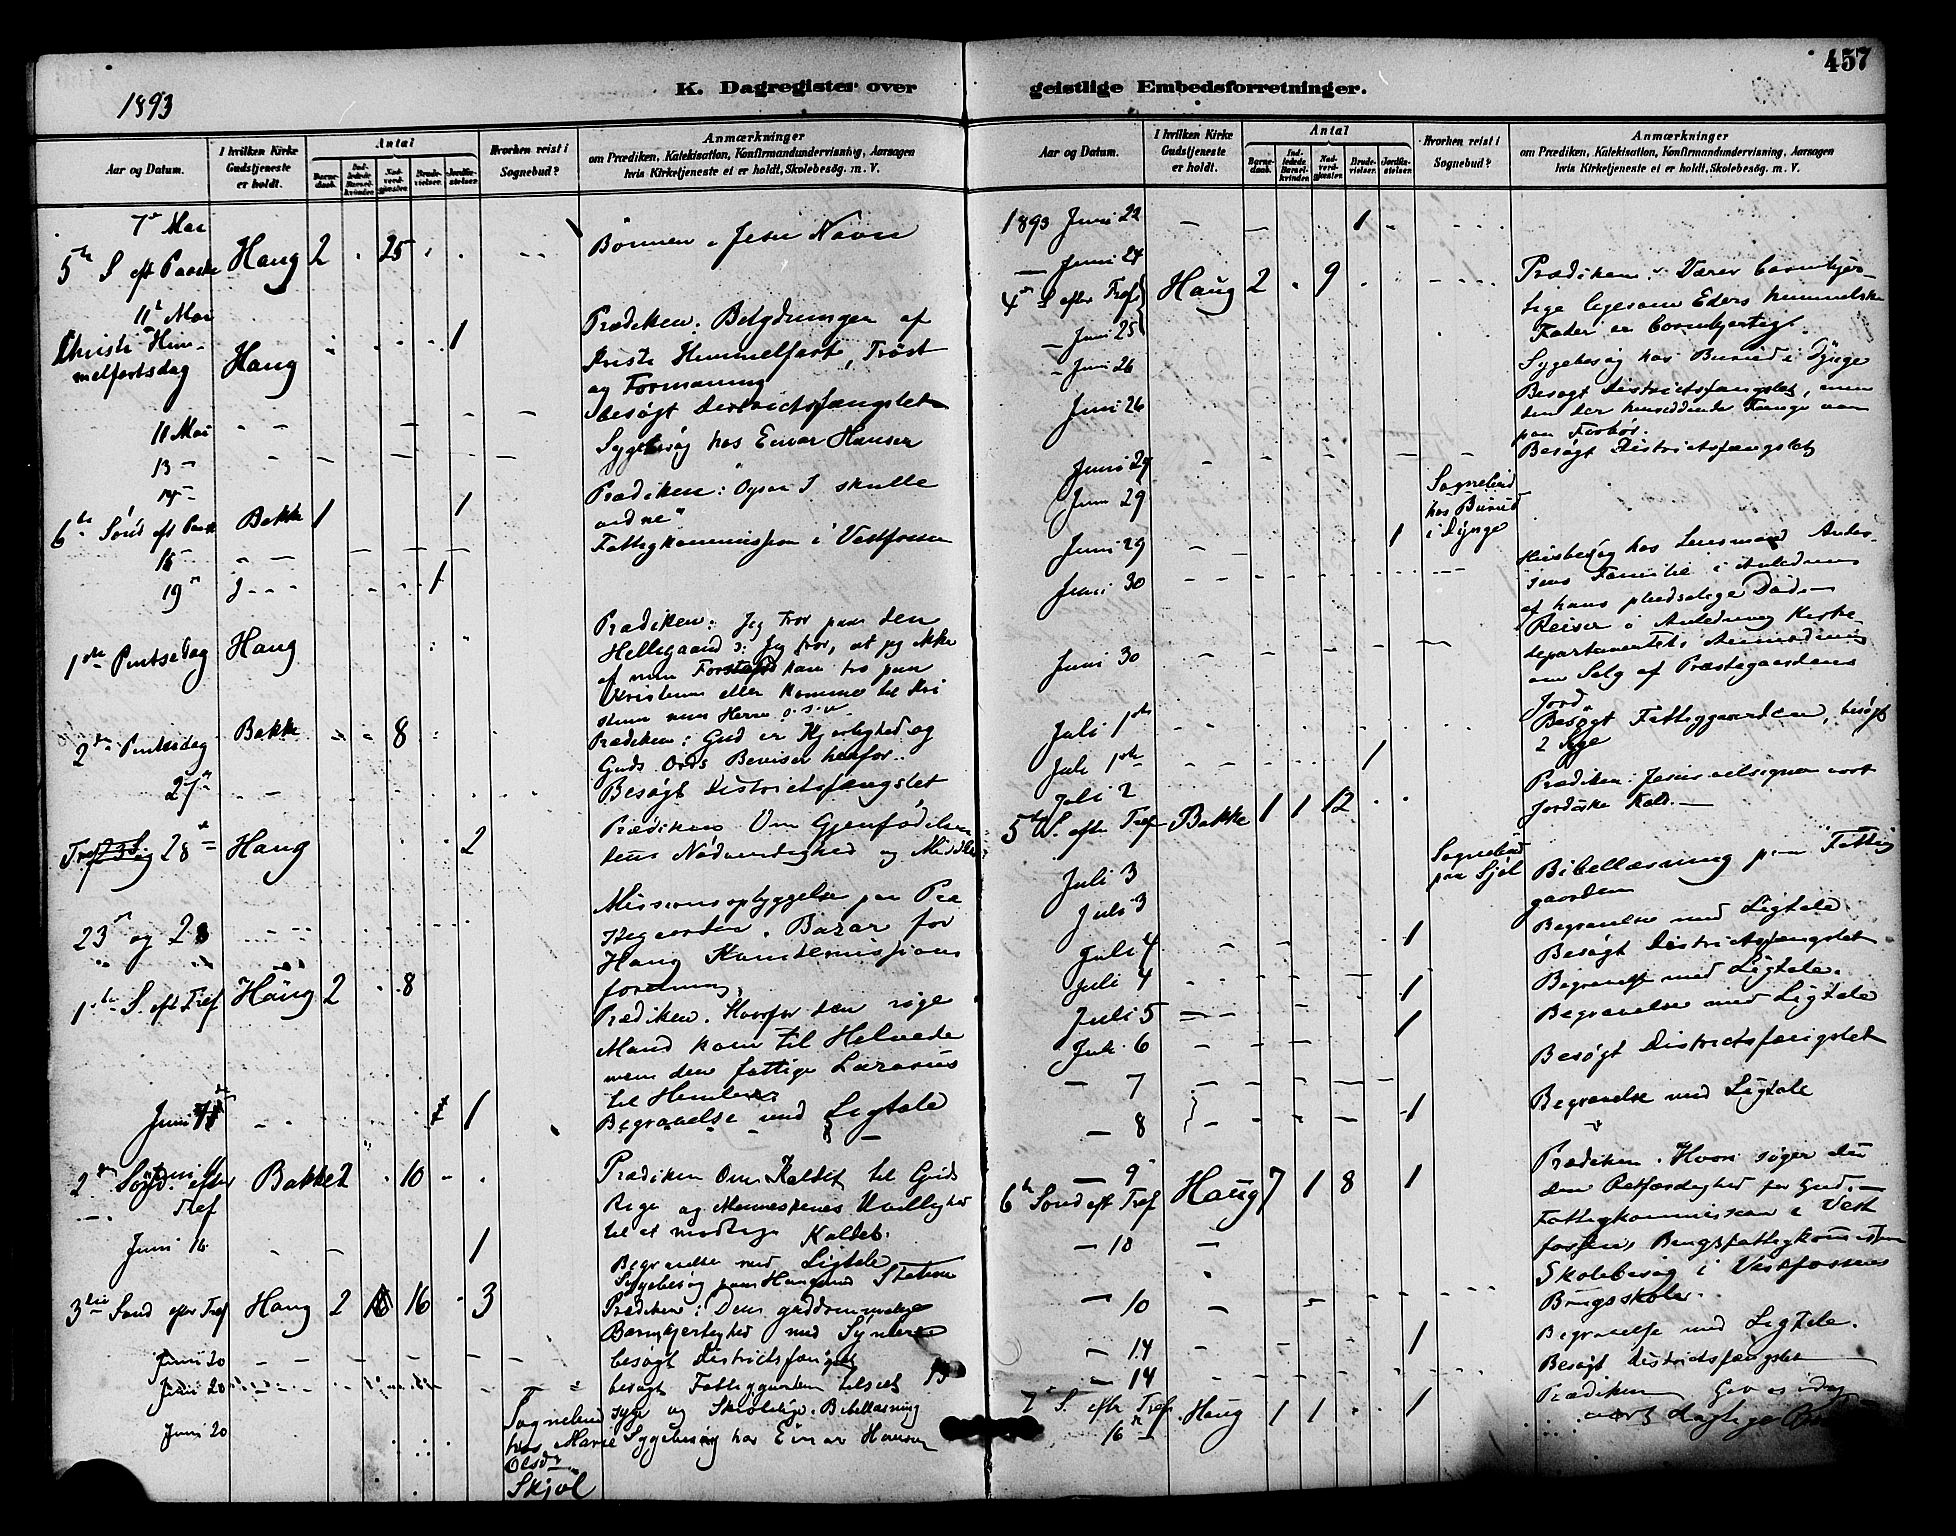 457
1893
K. Dagregister over geistlige Embedsforretninger.
Aar og Datum.
I hvilken Kirke Gudstjeneste er holdt.
Antal
Barnedaab.
Indledede Barselkvinder
Nadverdgjæster
Brudevielser.
Jordfæstelser.
Hvorhen reist i Sognebud?
Anmærkninger
om Prædiken, Katekisation, Konfirmandundervisning, Aarsagen
hvis Kirketjeneste ei er holdt, Skolebesøg. m. V.
7 Mai
5te S eft Paaske Haug 2 . 25 Bønnen i Jesu Navn
11te Mai
Christi Him-
melfartsdag Haug 1
Prædiken. Betydningen af
Kristi Himmelfart, Trøst
og Formaning
11 Mai besøgt Districtsfængslet
13 Sygebesøg hos Einar Hansen
14
6te Sønd eft Paaske Bakke 1 1
Prædiken: Ogsaa I skulle
vidne"
15 Fattigkommission i Vestfossen
19 1
1ste Pintsedag Haug
Prædiken: Jeg tror paa den
Helligaand : Jeg tror, at jeg ikke
af min Forstand kan tro paa
Kristum eller komme til Kri
stum min Herre o.s.v.
2den Pintsedag Bakke 8
Prædiken: Gud er Kjærlighed og
Guds Ords Beviser herfor.
27 Besøgt Districtsfængslet
28 Haug 2
Prædiken Om Gjenfødelsen
dens Nødvendighed og
23 og 28
Missionsopbyggelse paa Præ
stegaarden. Bazar for
Haug
forening.
1ste S. eft Tref Haug 2 8
Prædiken. Hvorfor den rige
Mand kom til Helvede
men den fattige Lazarus
til Himlen
Juni 1
Begravelse med Ligtale
2den Sønd. efter
Tref Bakke 2 10
Prædiken Om Kaldet til Guds
Rige og Menneskenes Uvillighed
til at modtage Kaldet.
Juni 16 1
Begravelse med Ligtale
Sygebesøg paa Haugsund Station
3die Sønd efter Tref Haug 2 16 3
Prædiken: Den guddommelige
Barmhjertighed med Syndere
Juni 20 besøgt Districtsfængslet
Juni 20 besøgt Fattiggaarden tilseet 13
syge og Skrøbelige. Bibellæsning
Juni 20 Sognebud
hos Marie
Olsdr
Skjøl
Sygebesøg hos Einar Hansen
Aar og Datum.
I hvilken Kirke Gudstjeneste er holdt.
Antal
Barnedaab.
Indledede Barselkvinder
Nadverdgjæster
Brudevielser.
Jordfæstelser.
Hvorhen reist i Sognebud?
Anmærkninger
om Prædiken, Katekisation, Konfirmandundervisning, Aarsagen
hvis Kirketjeneste ei er holdt, Skolebesøg m. V.
1893 Juni 22 1
Juni 24
4de S efter Tref Haug 2 9
Juni 25
Prædiken. Værer barmhjer-
tige ligesom Eders himmelske
Fader er barmhjertig.
Juni 26 Sygebesøg hos Burud i Dynge
Juni 26
Besøgt Districtsfængslet, men
den der hensiddende Fange var
paa Forhør.
Juni 27 Besøgt Districtsfængslet
Juni 29 Sognebud
hos Burud
i Dynge
Juni 29 1
Juni 30
Husbesøg hos Lensmand
Familie i Anledning
af hans pludselige Død.
Juni 30
Reiser i Anledning Kirke
departementets Anmodning
om Salg af Præstegaardens
Jord.
Juli 1ste
Besøgt Fattiggaarden, besøgt
2 syge
Juli 1ste 1
Juli 2
5te S. efter Tref Bakke 1 1 12
Prædiken: Jesus velsigner vort
jordiske Kald.
Juli 3 Sognebud
paa Sjøl
Juli 3
Bibellæsning paa Fattig
gaarden
Juli 4 1 Begravelse med Ligtale
Juli 4 Besøgt Districtsfængslet
Juli 5 1 Begravelse med Ligtale.
Juli 6 1 Begravelse med Ligtale
7 Besøgt Districtsfængslet
8 1 Begravelse med Ligtale
9
6te Sønd eft Tref Haug 7 1 8 1
Prædiken. Hvori søger du
den Retfærdighed for Gud.
10
Fattigkommission i Vest
fossens
10
Skolebesøg i Vestfossens
Brugsskole.
14 1 Begravelse med Ligtale.
14 Besøgt Districtsfængslet
7 S. eftr Tref
16 Haug 1 1 1
Prædiken Giv os idag
vort daglige